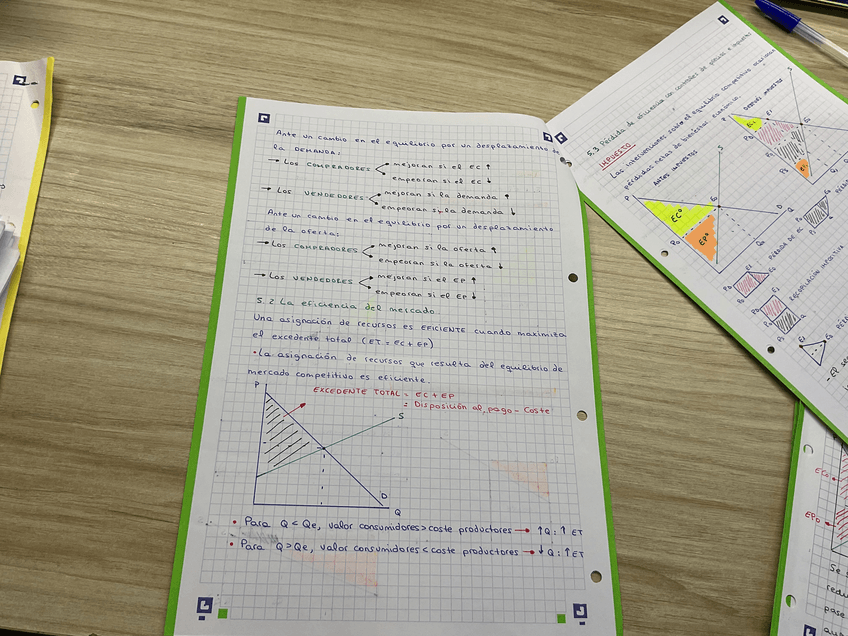 Ante un cambio en el equilibrio por un desplazamiento de
la DEMANDA:
→ Los COMPRADORES
mejoran si el EC ↑
empeoran si el EC ↓
→ Los VENDEDORES
mejoran si la demanda ↑
empeoran si la demanda ↓
Ante un cambio en el equilibrio por un desplazamiento
de la oferta:
→ Los COMPRADORES
mejoran si la oferta ↑
empeoran si la oferta ↓
→ Los VENDEDORES
mejoran si el EP ↑
empeoran si el EP ↓
5.2 La eficiencia del mercado.
Una asignación de recursos es EFICIENTE cuando maximiza
el excedente total (ET = EC + EP)
• La asignación de recursos que resulta del equilibrio de
mercado competitivo es eficiente.
P
EXCEDENTE TOTAL = EC + EP
= Disposición al pago - Coste
S
D
Q
• Para Q < Qe, valor consumidores > coste productores → ↑Q: ↑ET
• Para Q > Qe, valor consumidores < coste productores → ↓Q: ↑ET
5.3 Pérdida de eficiencia con controles de precios e impuestos
IMPUESTO
Las intervenciones sobre el equilibrio competitivo
pérdidas netas de bienestar económico.
ANTES IMPUESTOS
DESPUÉS IMPUESTO
P
S
EC⁰
EP⁰
P₀
E₀
D
Q
P
S
E₁
E₀
PÉRDIDA DE EC
RECAPILACIÓN IMPOSITIVA
- EP
EC₀
EP₀
Se